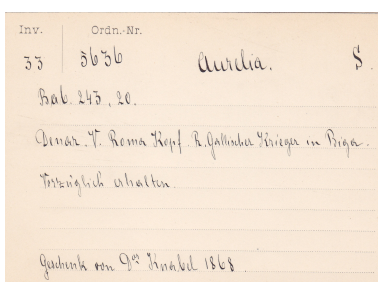 Inv. Ordn.-Nr.
33 5636 Aurelia. S.
Bab. 243, 20.
Denar. V. Roma Kopf. R. Gallischer Krieger in Biga.
Vorzüglich erhalten.
Geschenk von Dr Knabl 1868.